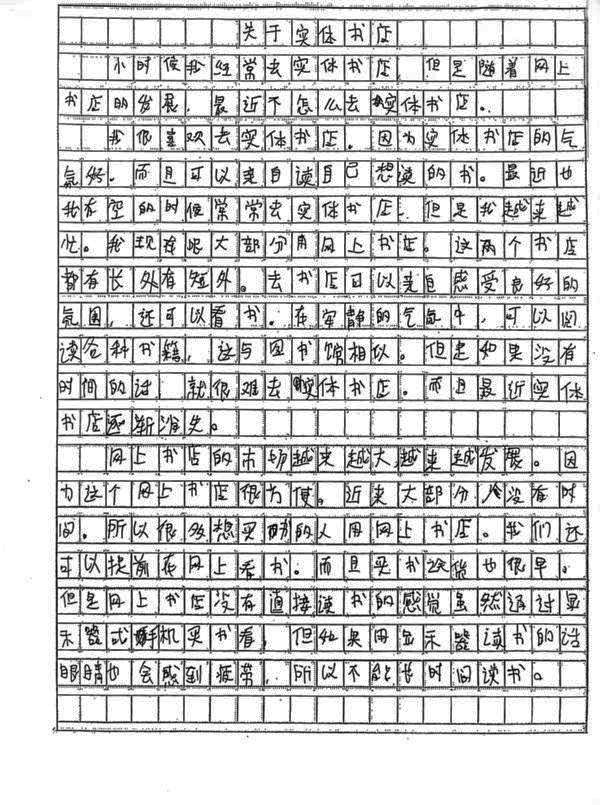 关于实体书店
小时候我经常去实体书店，但是随着网上
书店的发展，最近不怎么去实体书店。
我很喜欢去实体书店。因为实体书店的气
氛好。而且可以亲自读自己想读的书。最近也
我有空的时候常常去实体书店，但是我越来越
忙。我现在跟大部分用网上书店。这两个书店
都有长外有短外。去书店可以亲自感受良好的
氛围，还可以看书。在安静的气氛中，可以阅
读各种书籍，这与图书馆相似。但是如果没有
时间的话 就很难去实体书店。而且最近实体
书店逐渐消失。
网上书店的市场越来越大，越来越发展。因
为这个网上书店很方便。近来大部分人没有时
间。所以很多想买书的人用网上书店。我们还
可以提前在网上看书。而且买书送货也很早。
但是网上书店没有直接读书的感觉虽然通过显
示器或手机买书看，但如果用显示器读书的话
眼睛也会感到疲劳，所以不能长时间读书。